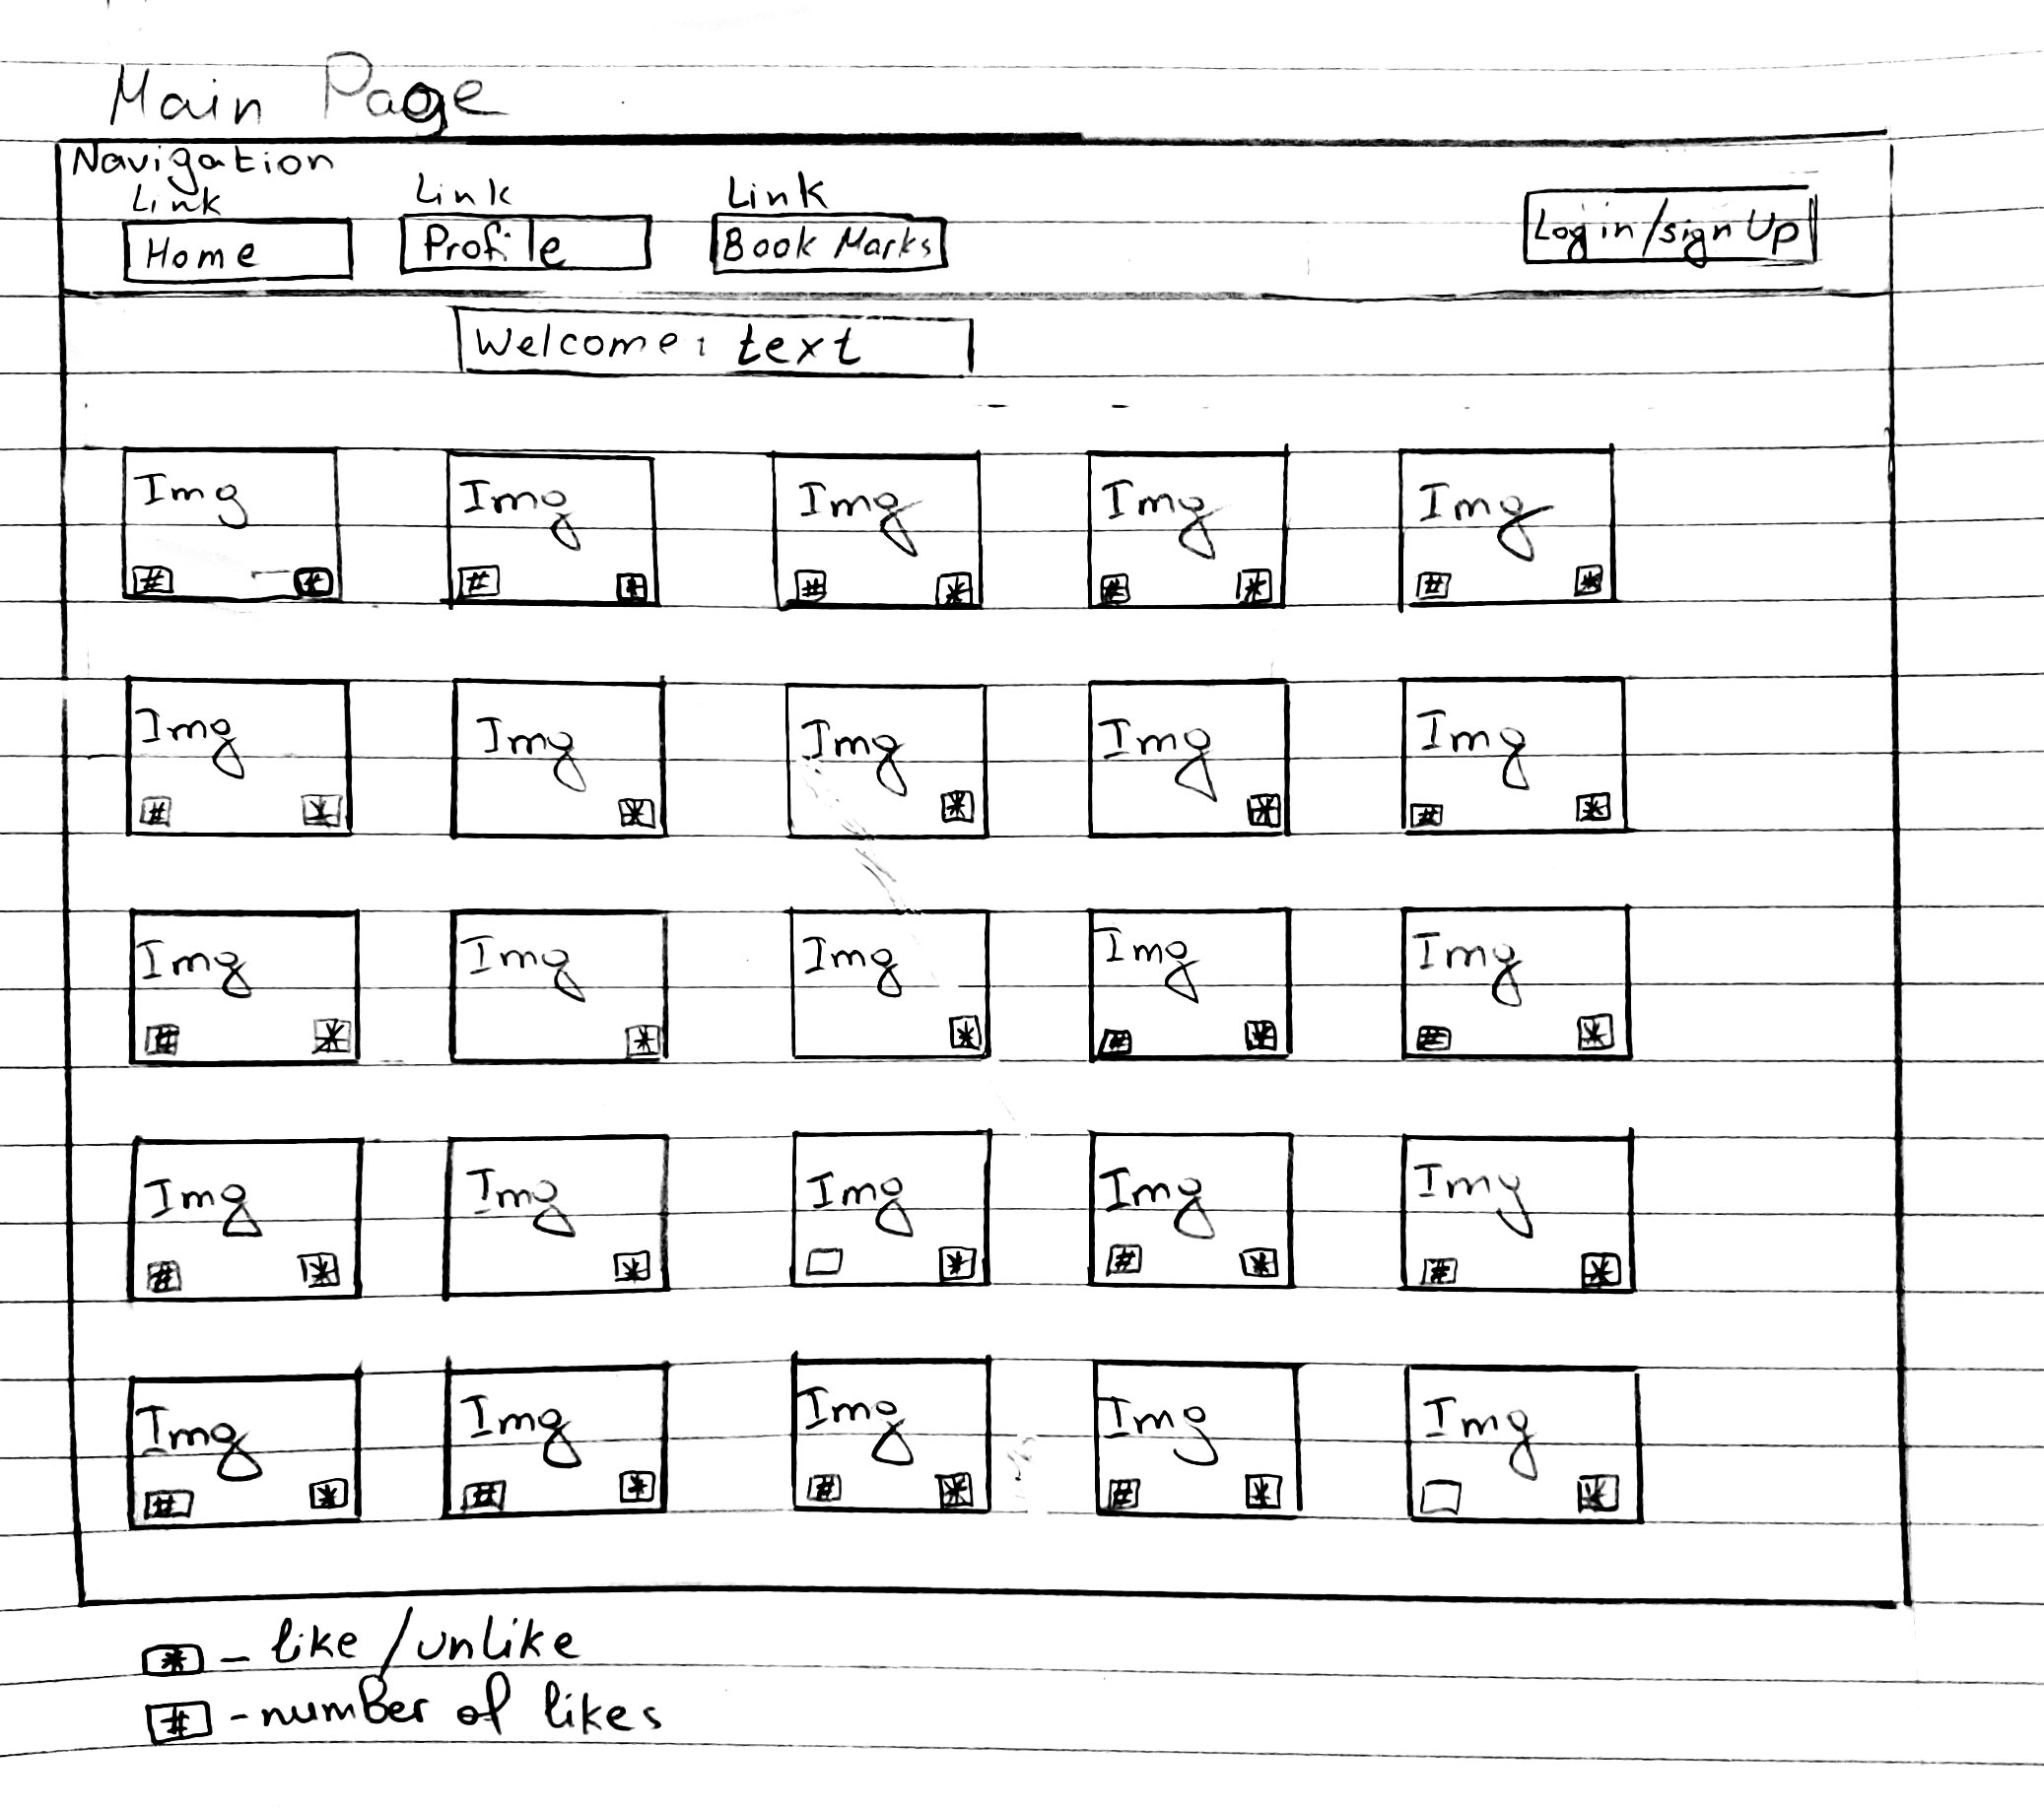 Main Page
Navigation
Link Link Link
Home Profile Book Marks Log in/sign Up
Welcome: text
Img Img Img Img Img
# * # * # * # * # *
Img Img Img Img Img
# * * * * # *
Img Img Img Img Img
# * * * # * # *
Img Img Img Img Img
# * * * # * # *
Img Img Img Img Img
# * # * # * # * *
* - like/unlike
# - number of likes